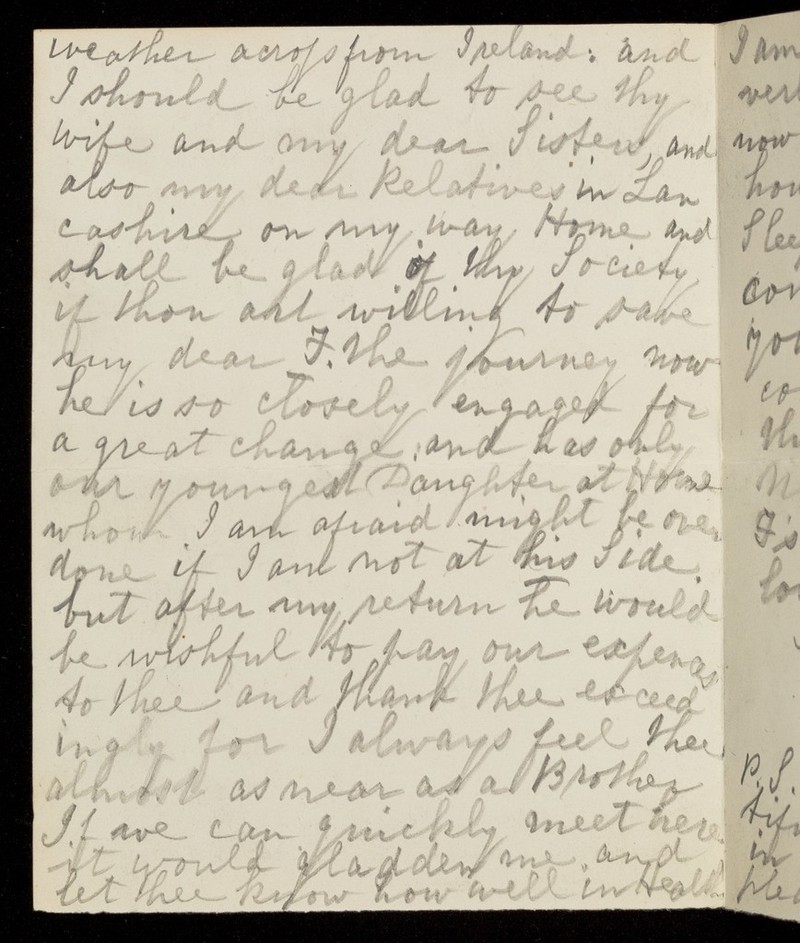 weather across from Ireland: and
I should be glad to see thy
wife and my dear Sisters, and
also my dear Relatives in Lan
cashire on my way Home and
shall be glad of thy Society
if thou art willing to save
my dear F. the journey now
he is so closely engaged for
a great change, and has only
our youngest Daughter at Home
whom I am afraid might be over
done if I am not at his Side.
but after my return he would
be wishful to pay our expences
to thee and thank thee exceed
ingly for I always feel thee
almost as near as a Brother
If we can quickly meet here
it would gladden me and
let thee know how well in Health
I am
now
P.S.
in